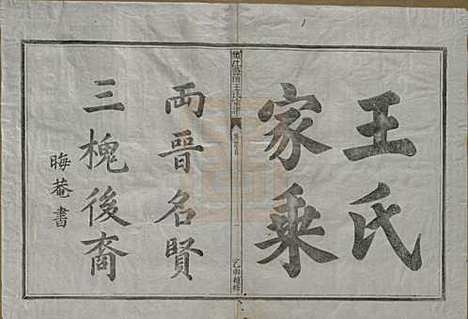 王氏
家乘
兩晉名賢
三槐後裔
晦菴書